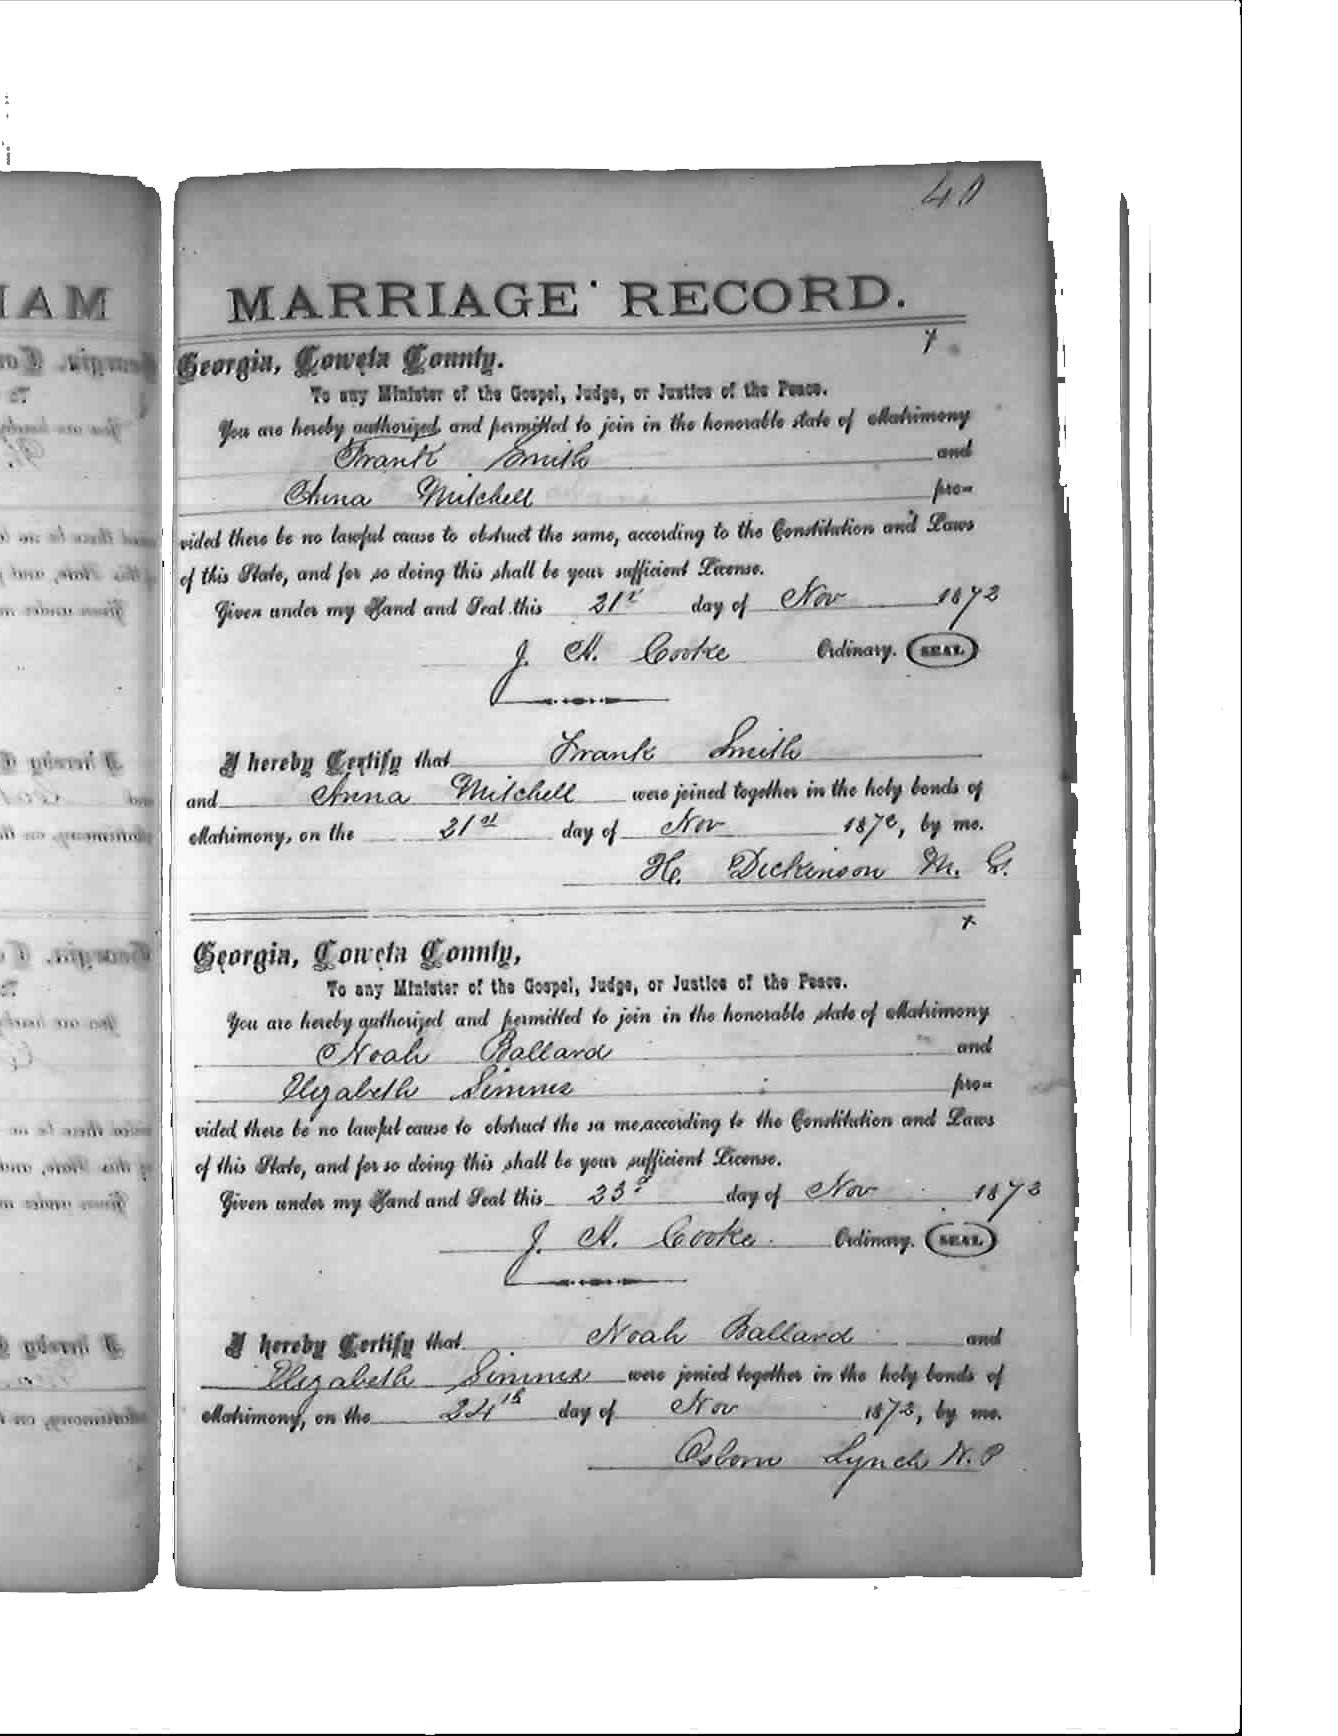 40
MARRIAGE RECORD.
Georgia, Coweta County.
To any Minister of the Gospel, Judge, or Justice of the Peace.
You are hereby authorized and permitted to join in the honorable state of Matrimony
Frank Smith and
Anna Mitchell pro-
vided there be no lawful cause to obstruct the same, according to the Constitution and Laws
of this State, and for so doing this shall be your sufficient License.
Given under my Hand and Seal this 21st day of Nov 1872
J. H. Cooke Ordinary. SEAL
I hereby Certify that Frank Smith
and Anna Mitchell were joined together in the holy bonds of
Matrimony, on the 21st day of Nov 1872, by me.
H. Dickinson M. G.
Georgia, Coweta County,
To any Minister of the Gospel, Judge, or Justice of the Peace.
You are hereby authorized and permitted to join in the honorable state of Matrimony
Noah Ballard and
Elizabeth Simms pro-
vided there be no lawful cause to obstruct the sa me, according to the Constitution and Laws
of this State, and for so doing this shall be your sufficient License.
Given under my Hand and Seal this 23d day of Nov 1872
J. H. Cooke Ordinary. SEAL
I hereby Certify that Noah Ballard and
Elizabeth Simms were jonied together in the holy bonds of
Matrimony, on the 24th day of Nov 1872, by me.
Osborn Lynch N. P